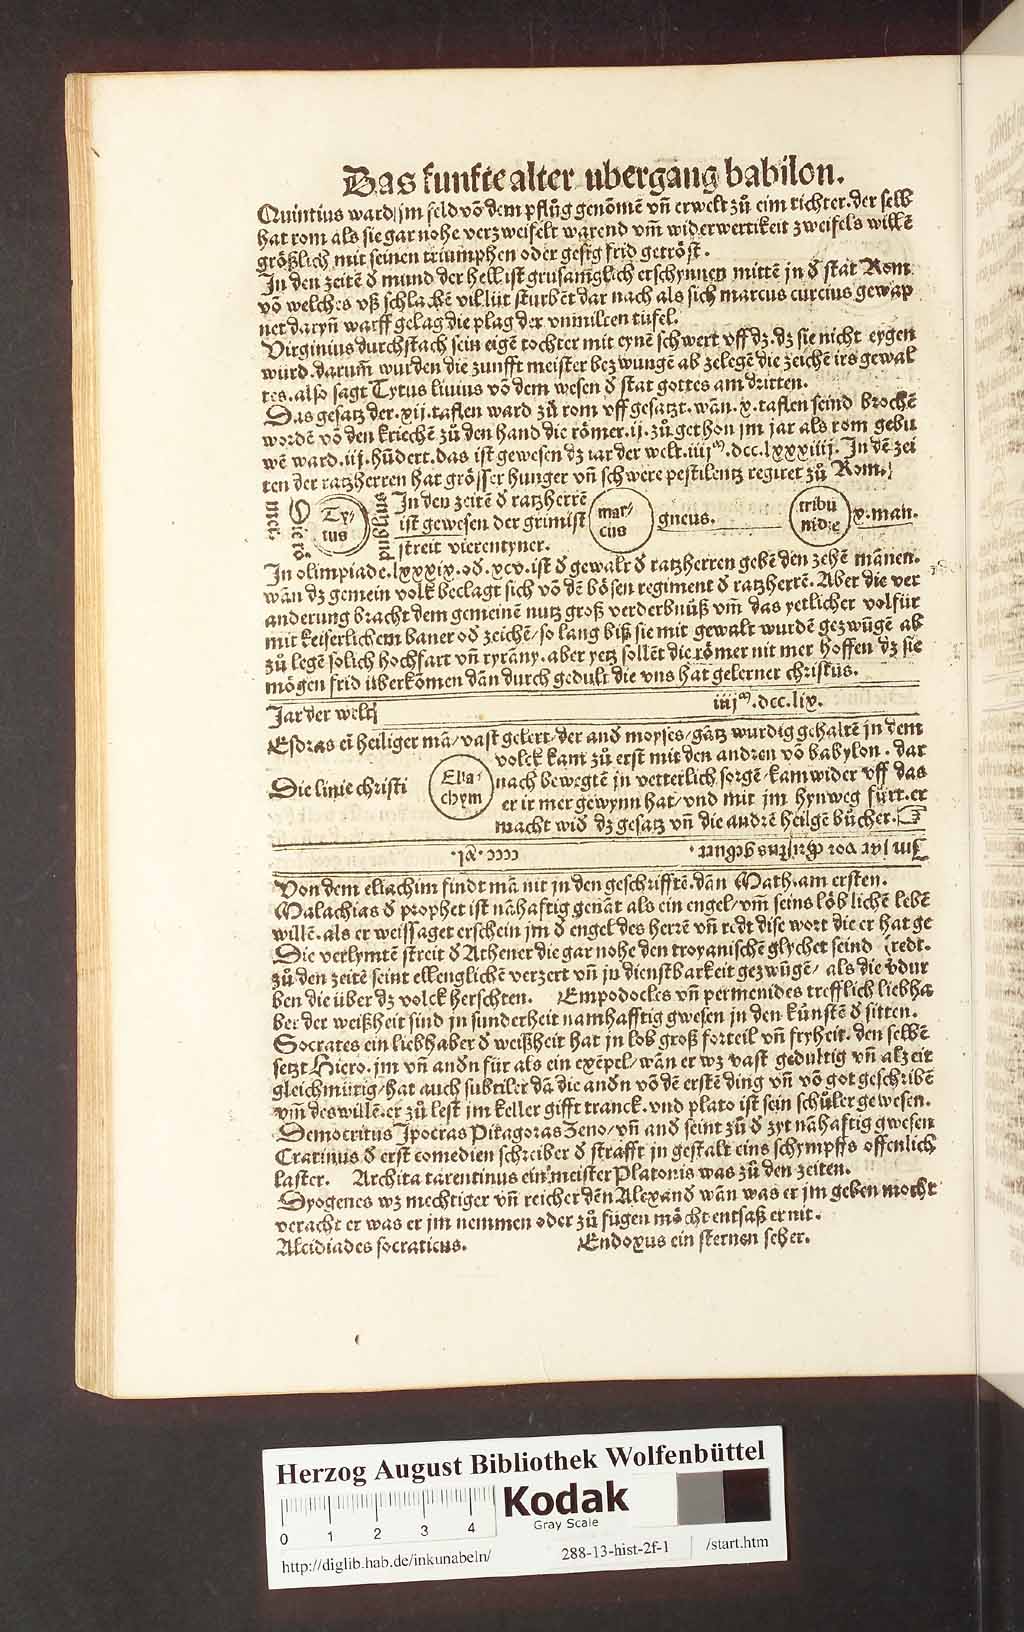 Das funfte alter ubergang babilon.
Quintius ward jm feld võ dem pflůg genõmẽ vñ erwelt zů eim richter. der selb
hat rom als sie gar nohe verzweifelt warend vm̃ widerwertikeit zweifels willẽ
größlich mit seinen triumphen oder gesig frid getröst.
In den zeitẽ d mund der hell ist grusam̃glich erschynnen mittẽ jn d stat Rom
võ welches vß schlahẽ vil lüt sturbẽt dar nach als sich marcus curcius gewap
net daryñ warff gelag die plag der vnmilten tüfel.
Virginius durchstach sein eigẽ tochter mit eynẽ schwert vff dz. dz sie nicht eygen
würd. darum̃ wurden die zunfft meister bezwungẽ ab zelegẽ die zeichẽ irs gewal
tes. also sagt Tytus liuius võ dem wesen d stat gottes am dritten.
Das gesatz der .xij. taflen ward zů rom vff gesatzt. wãn .x. taflen seind brochẽ
wordẽ võ den kriechẽ zů den hand die römer .ij. zů gethon jm jar als rom gebu
wẽ ward .iij. hũdert. das ist gewesen dz iar der welt .iiijᵐ. .dcc.lxxxiiij. In dẽ zei
ten der ratzherren hat grösser hunger vñ schwere pestilentz regiret zů Rom.
Tytus
In den zeitẽ d ratzherrẽ
ist gewesen der grimist
streit vierentyner.
marcus
gneus.
tribu nidze
x. man.
In olimpiade .lxxxix. od .xcv. ist d gewalt d ratzherren gebẽ den zehẽ mãnen.
wãn dz gemein volk beclagt sich võ dẽ bösen regiment d ratzherrẽ. Aber die ver
anderung bracht dem gemeinẽ nutz groß verderbnüß vm̃ das yetlicher volfür
mit keiserlichem baner od zeichẽ/ so lang biß sie mit gewalt wurdẽ gezwũgẽ ab
zů legẽ solich hochfart vñ tyrãny. aber yetz sollẽt die römer nit mer hoffen dz sie
mögen frid überkõmen dãn durch gedult die vns hat gelerner christus.
Jar der welt iiijᵐ. .dcc.lix.
Esdras eĩ heiliger mã/ vast gelert/ der and moyses/ gãtz wurdig gehaltẽ jn dem
volck kam zů erst mit den andren võ babylon. dar
Die linie christi
Eliachym
nach bewegtẽ jn vetterlich sorgẽ/ kam wider vff das
er ir mer gewynn hat/ vnd mit jm hynweg fürt. er
macht wid dz gesatz vñ die andrẽ heilgẽ bůcher.
Im jar vor christus geburt. cccc.xl.
Von dem eliachim findt mã nit jn den geschrifftẽ. dan Math. am ersten.
Malachias d prophet ist nãhaftig genãt als ein engel/ vm̃ seins löblichẽ lebẽ
willẽ. als er weissaget erschein jm d engel des herrẽ vñ redt dise wort die er hat ge
Die verlymtẽ streit d Athener die gar nohe den troyanischẽ glychet seind (redt.
zů den zeitẽ seint ellenglichẽ verzert vñ jn dienstbarkeit gezwũgẽ/ als die vdur
ben die über dz volck herschten. Empodocles vñ permenides trefflich liebha
ber der weißheit sind jn sunderheit namhafftig gwesen jn den künstẽ d sitten.
Socrates ein liebhaber d weißheit hat jn lob groß forteil vñ fryheit. den selbẽ
setzt Hiero. jm vñ andn für als ein exẽpel/ wãn er wz vast gedultig vñ alzeit
gleichmütig/ hat auch subtiler dã die andn võ dẽ erstẽ ding vñ võ got geschribẽ
vm̃ des willẽ. er zů lest jm keller gifft tranck. vnd plato ist sein schůler gewesen.
Democritus Ipocras Pitagoras Zeno/ vñ and seint zů d zyt nãhaftig gwesen
Cratinus d erst comedien schreiber d strafft jn gestalt eins schympffs offenlich
laster. Archita tarentinus ein meister Platonis was zů den zeiten.
Dyogenes wz mechtiger vñ reicher dẽn Alexand wãn was er jm geben mocht
veracht er was er jm nemmen oder zů fůgen möcht entsaß er nit.
Alcidiades socraticus. Endoxus ein sternen seher.
Herzog August Bibliothek Wolfenbüttel
0 1 2 3 4
Kodak
Gray Scale
http://diglib.hab.de/inkunabeln/ 288-13-hist-2f-1 /start.htm